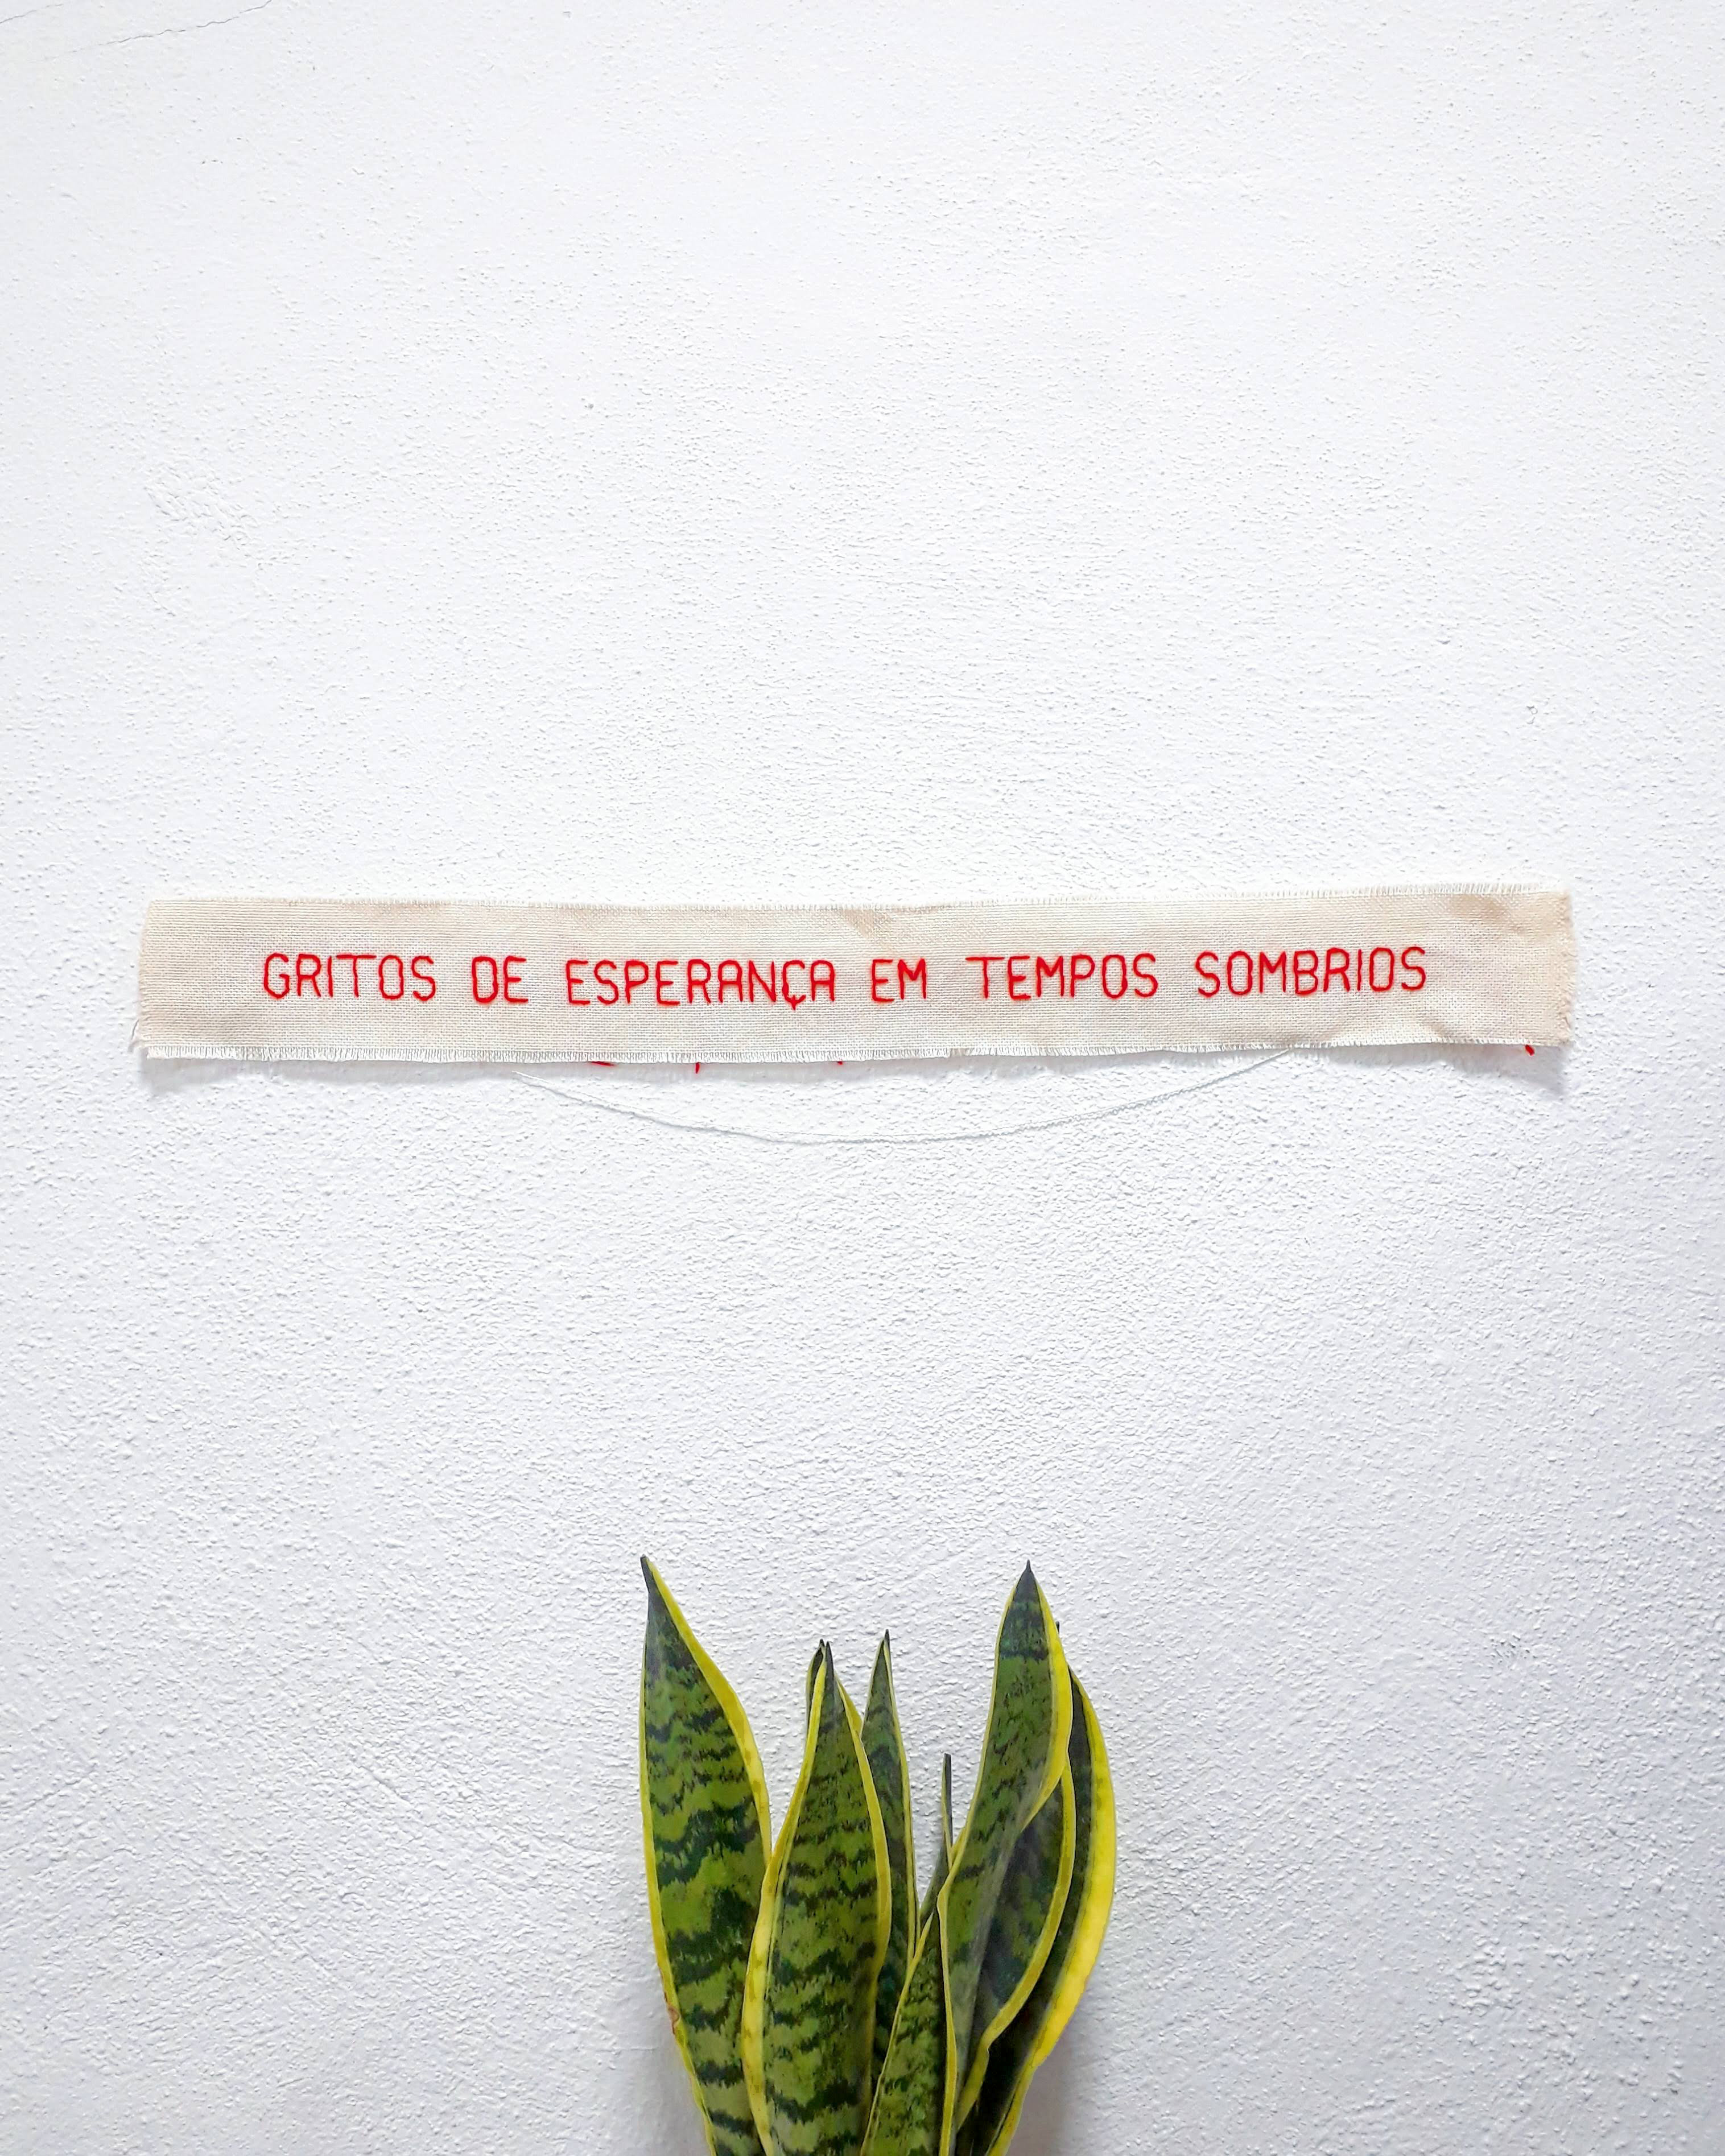 GRITOS DE ESPERANÇA EM TEMPOS SOMBRIOS